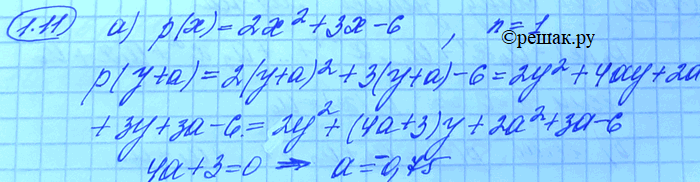 1.11) а) p(x)=2x²+3x-6, n=1
©решак.ру
p(y+a)=2(y+a)²+3(y+a)-6=2y²+4ay+2a
+3y+3a-6=2y²+(4a+3)y+2a²+3a-6
4a+3=0 ⇒ a=-0,75